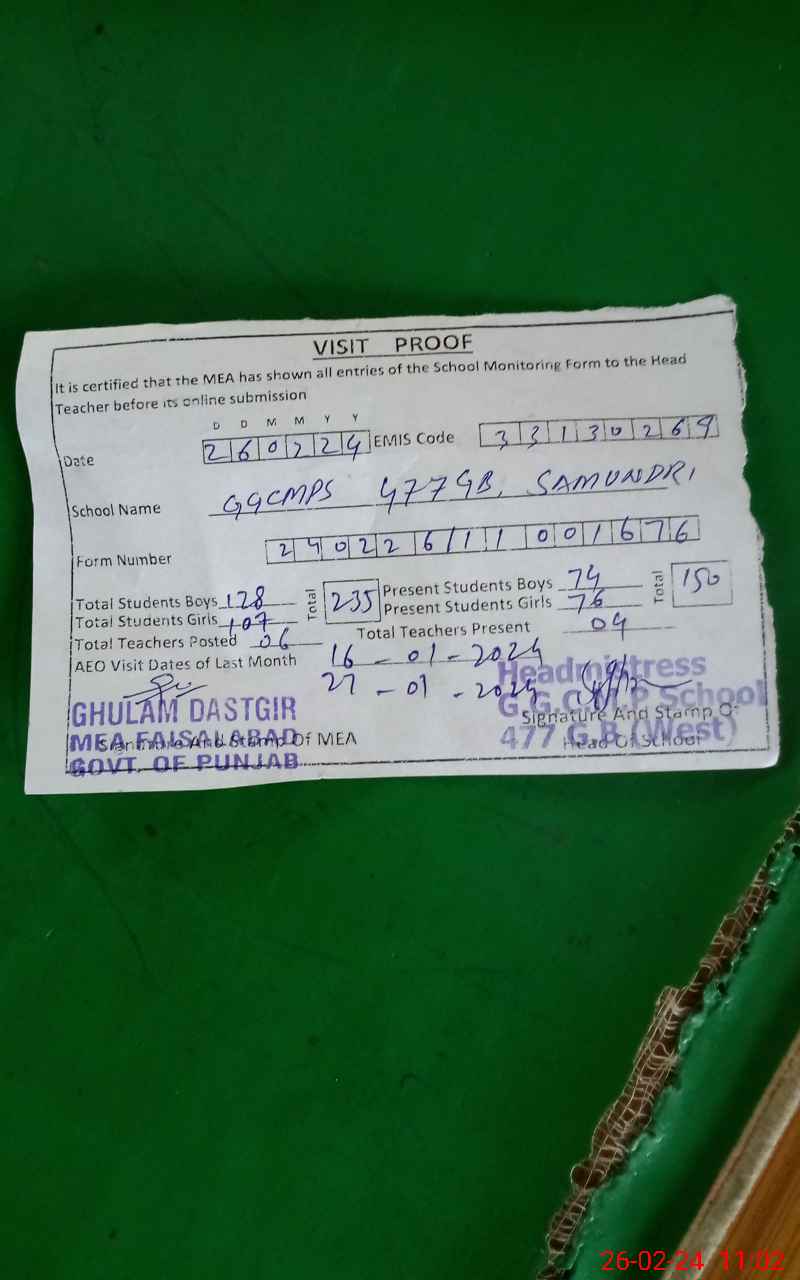 VISIT PROOF
It is certified that the MEA has shown all entries of the School Monitoring Form to the Head
Teacher before its online submission
D D M M Y Y
Date 260224 EMIS Code 33130269
School Name GGCMPS 477GB, SAMUNDRI
Form Number 24022611001676
Total Students Boys 128 Total 235 Present Students Boys 74 Total 150
Total Students Girls 107 Present Students Girls 76
Total Teachers Posted 06 Total Teachers Present 04
AEO Visit Dates of Last Month 16-01-2024
27-01-2024
Headmistress
GHULAM DASTGIR G.G.C.M.P School
Signature And Stamp Of
MEA FAISALABAD 477 G.B (West)
Signature And Stamp Of MEA Head Of School
GOVT. OF PUNJAB
26-02-24 11:02